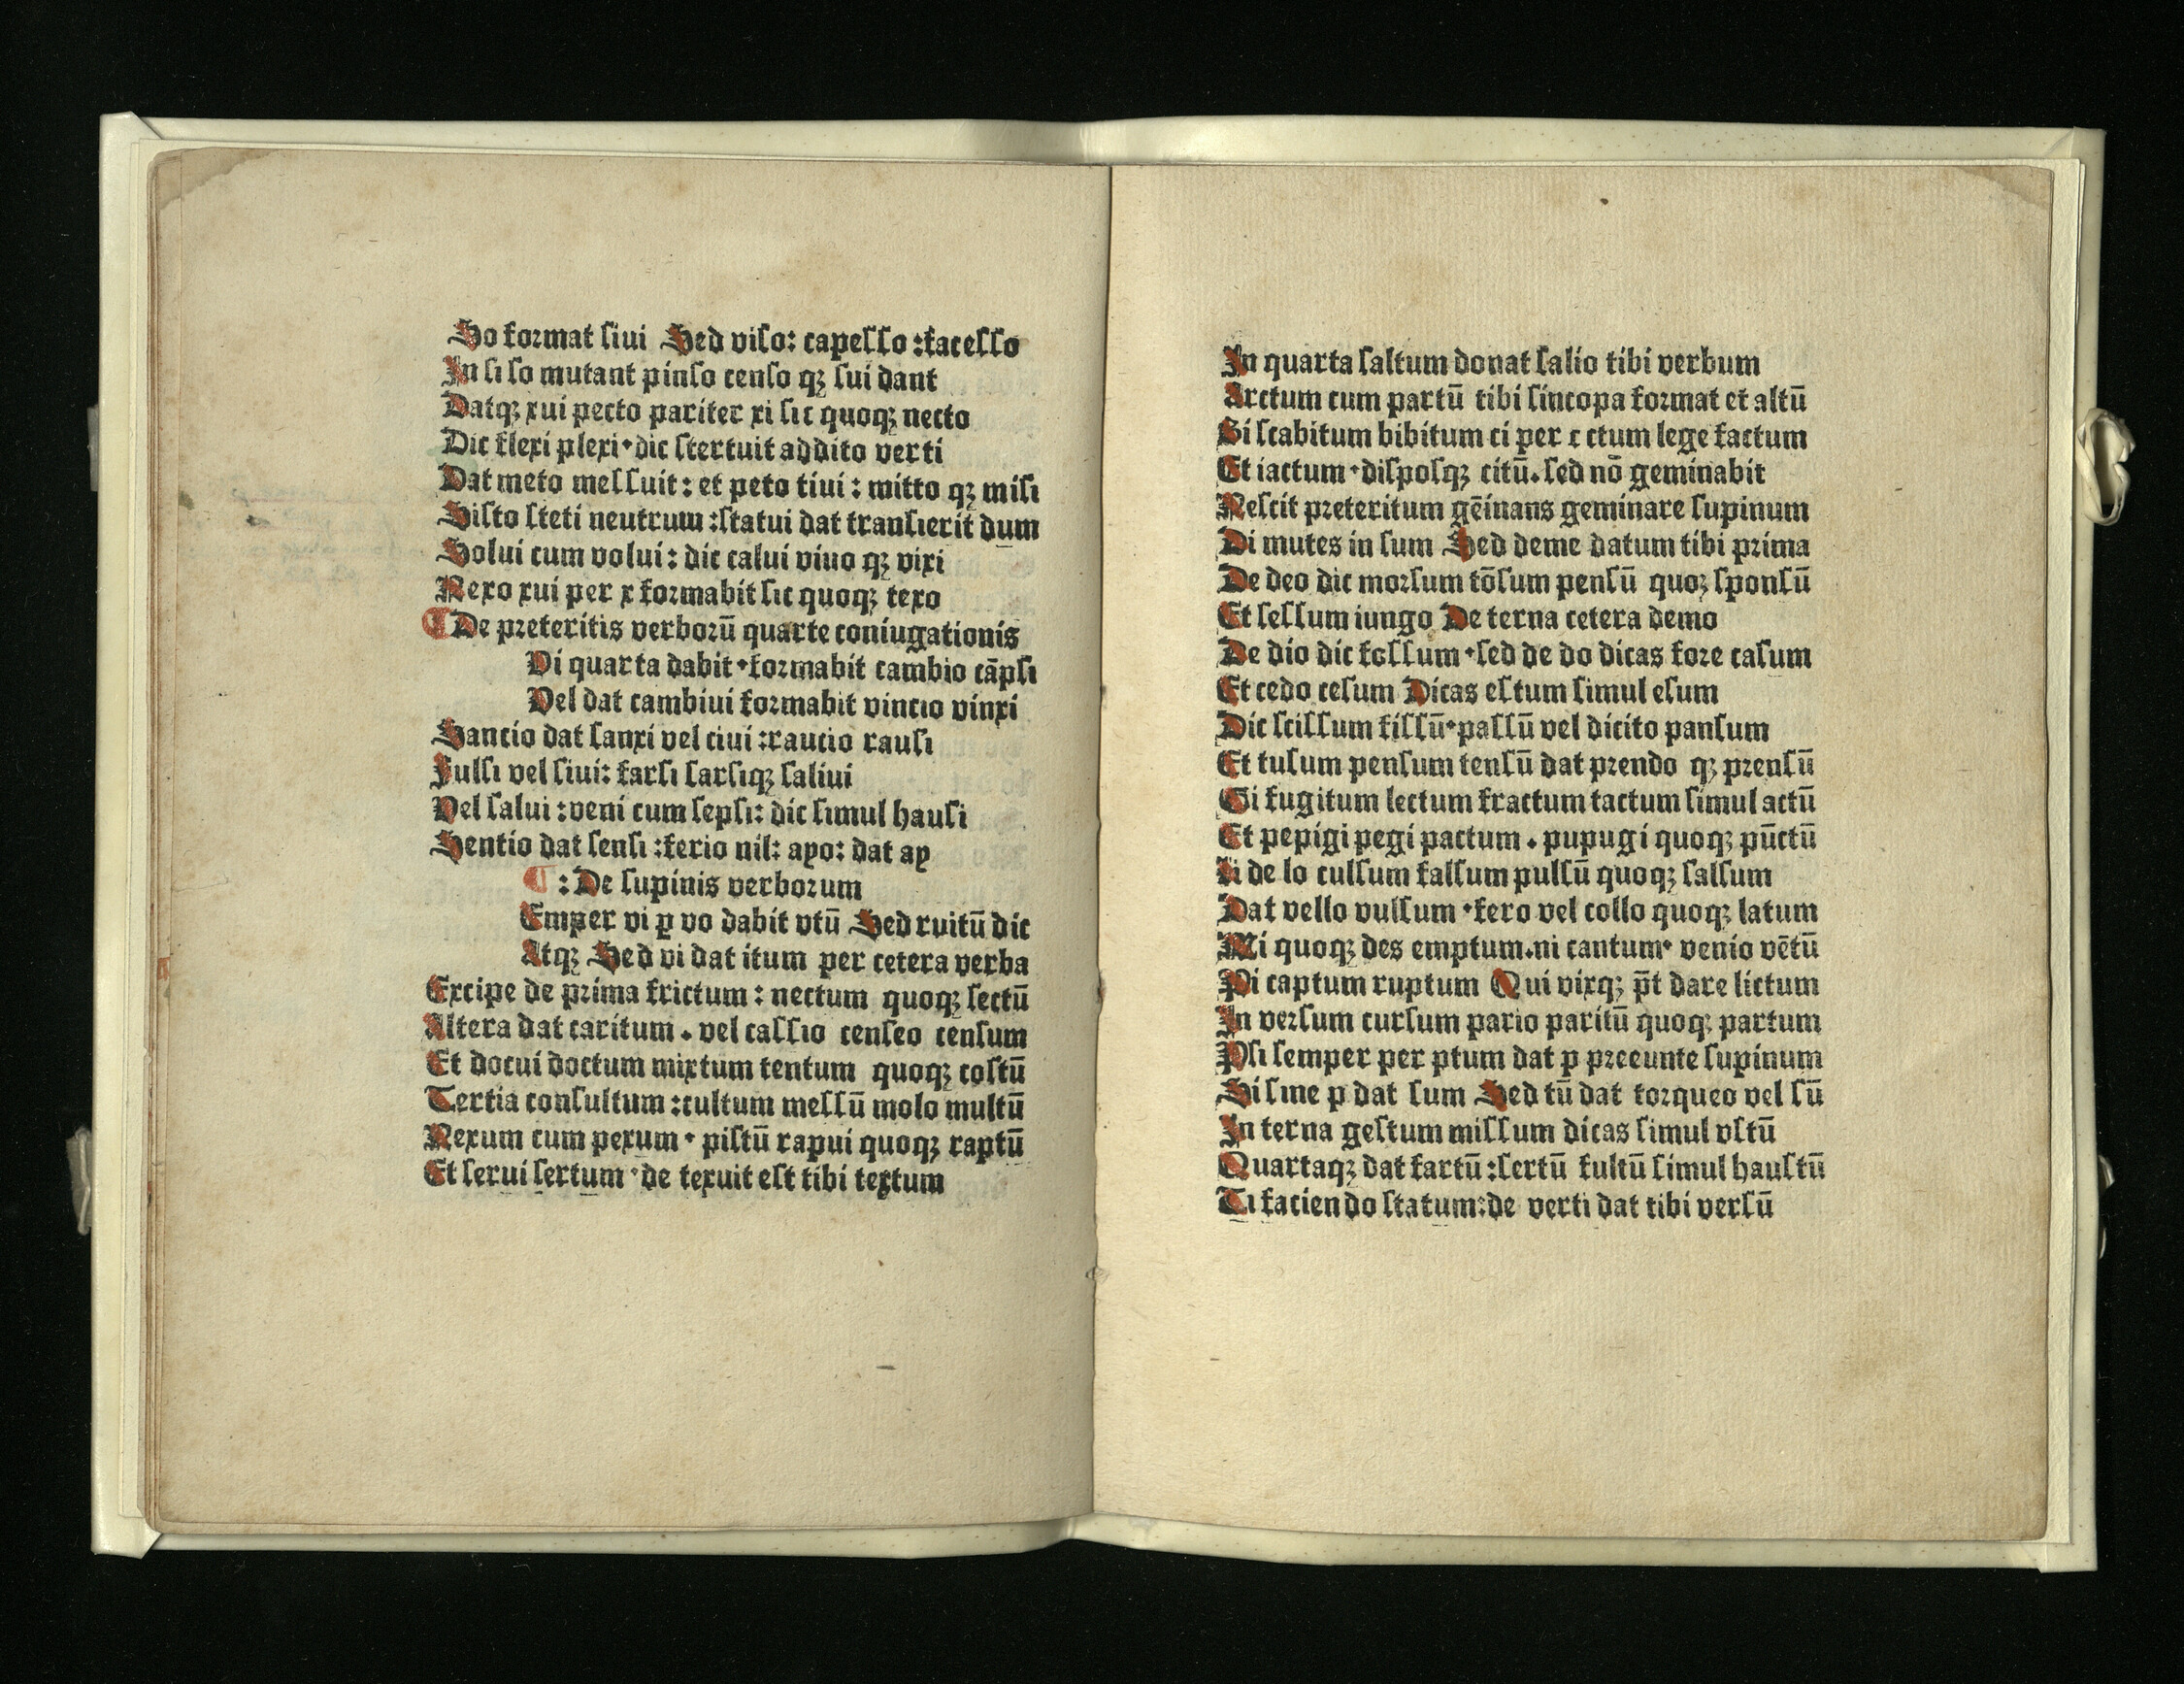 So format siui Sed viso: capesso :facesso
In si so mutant pinso censo qꝫ sui dant
Datqꝫ xui pecto pariter xi sic quoqꝫ necto
Dic flexi plexi·dic stertuit addito verti
Dat meto messuit: et peto tiui: mitto qꝫ misi
Sisto steti neutrum :statui dat transierit dum
Solui cum volui: dic calui viuo qꝫ vixi
Nexo xui per x formabit sic quoqꝫ texo
¶ De preteritis verborū quarte coniugationis
Vi quarta dabit·formabit cambio cāpsi
Vel dat cambiui formabit vincio vinxi
Sancio dat sanxi vel ciui :raucio rausi
Fulsi vel siui: farsi sarsiqꝫ saliui
Vel salui :veni cum sepsi: dic simul hausi
Sentio dat sensi :ferio nil: ayo: dat ay
¶ :De supinis verborum
Emper vi ꝑ vo dabit vtū Sed ruitū dic
Atqꝫ Sed vi dat itum per cetera verba
Excipe de prima frictum: nectum quoqꝫ sectū
Altera dat caritum . vel cassio censeo censum
Et docui doctum mixtum tentum quoqꝫ tostū
Tertia consultum :cultum messū molo multū
Nexum cum pexum · pistū rapui quoqꝫ raptū
Et serui sertum ·de texuit est tibi textum
In quarta saltum donat salio tibi verbum
Arctum cum partū tibi sincopa format et altū
Bi scabitum bibitum ci per c ctum lege factum
Et iactum ·disposqꝫ citū. sed nō geminabit
Nescit preteritum gēinans geminare supinum
Di mutes in sum Sed deme datum tibi prima
De deo dic morsum tōsum pensū quoꝫ sponsū
Et sessum iungo De terna cetera demo
De dio dic fossum ·sed de do dicas fore casum
Et cedo cesum Dicas estum simul esum
Dic scissum fissū·passū vel dicito pansum
Et tusum pensum tensū dat prendo qꝫ prensū
Gi fugitum lectum fractum tactum simul actū
Et pepigi pegi pactum . pupugi quoqꝫ pūctū
li de lo culsum falsum pulsū quoqꝫ salsum
Dat vello vulsum ·fero vel collo quoqꝫ latum
Mi quoqꝫ des emptum.ni cantum· venio vētū
Pi captum ruptum Qui vixqꝫ p̄t dare lictum
In versum cursum pario paritū quoqꝫ partum
Psi semper per ptum dat p preeunte supinum
Si sine p dat sum Sed tū dat torqueo vel sū
In terna gestum missum dicas simul vstū
Quartaqꝫ dat fartū :sertū fultū simul haustū
Ti faciendo statum:de verti dat tibi versū